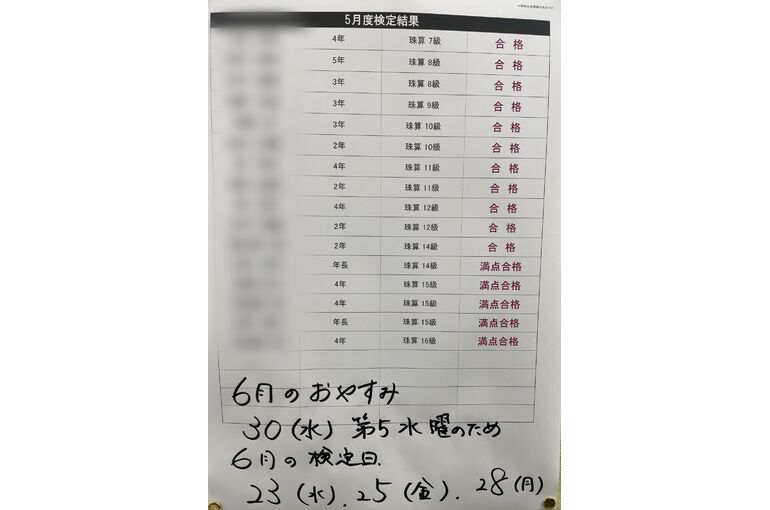 5月度検定結果
4年 珠算 7級 合格
5年 珠算 8級 合格
3年 珠算 8級 合格
3年 珠算 9級 合格
3年 珠算 10級 合格
2年 珠算 10級 合格
4年 珠算 11級 合格
2年 珠算 11級 合格
4年 珠算 12級 合格
2年 珠算 12級 合格
2年 珠算 14級 合格
年長 珠算 14級 満点合格
4年 珠算 15級 満点合格
4年 珠算 15級 満点合格
年長 珠算 15級 満点合格
4年 珠算 16級 満点合格
6月のおやすみ
30(水) 第5水曜のため
6月の検定日.
23(水). 25(金). 28(月)